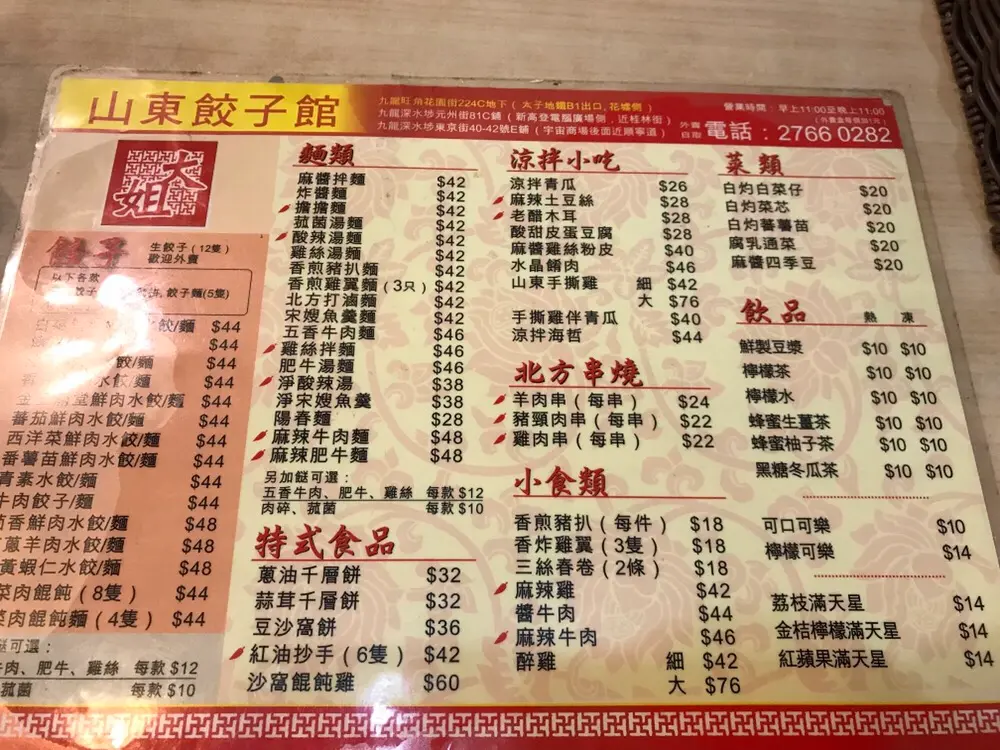 山東餃子館
九龍旺角花園街224C地下（太子地鐵B1出口，花墟側）
九龍深水埗元州街81C鋪（新高登電腦廣場側，近桂林街）
九龍深水埗東京街40-42號E鋪（宇宙商場後面近順寧道）
營業時間：早上11:00至晚上11:00
外賣自取 電話：2766 0282
大姐
餃子
生餃子（12隻）
歡迎外賣
以下各款
餃子麵(5隻)
水餃/麵 $44
$44
餃/麵 $44
水餃/麵 $44
水餃/麵 $44
蕃茄鮮肉水餃/麵 $44
西洋菜鮮肉水餃/麵 $44
番薯苗鮮肉水餃/麵 $44
青素水餃/麵 $44
牛肉餃子/麵 $44
茴香鮮肉水餃/麵 $48
蔥羊肉水餃/麵 $48
黃蝦仁水餃/麵 $48
菜肉餛飩（8隻） $44
菜肉餛飩麵（4隻） $44
可選：
牛肉、肥牛、雞絲 每款 $12
菰菌 每款 $10
麵類
麻醬拌麵 $42
炸醬麵 $42
擔擔麵 $42
菰菌湯麵 $42
酸辣湯麵 $42
雞絲湯麵 $42
香煎豬扒麵 $42
香煎雞翼麵（3只） $42
北方打滷麵 $42
宋嫂魚羹麵 $42
五香牛肉麵 $46
雞絲拌麵 $46
肥牛湯麵 $46
淨酸辣湯 $38
淨宋嫂魚羹 $38
陽春麵 $28
麻辣牛肉麵 $48
麻辣肥牛麵 $48
另加餸可選：
五香牛肉、肥牛、雞絲 每款 $12
肉碎、菰菌 每款 $10
特式食品
蔥油千層餅 $32
蒜茸千層餅 $32
豆沙窩餅 $36
紅油抄手（6隻） $42
沙窩餛飩雞 $60
涼拌小吃
涼拌青瓜 $26
麻辣土豆絲 $28
老醋木耳 $28
酸甜皮蛋豆腐 $28
麻醬雞絲粉皮 $40
水晶餚肉 $46
山東手撕雞 細 $42
大 $76
手撕雞伴青瓜 $40
涼拌海哲 $44
北方串燒
羊肉串（每串） $24
豬頸肉串（每串） $22
雞肉串（每串） $22
小食類
香煎豬扒（每件） $18
香炸雞翼（3隻） $18
三絲春卷（2條） $18
麻辣雞 $42
醬牛肉 $44
麻辣牛肉 $46
醉雞 細 $42
大 $76
菜類
白灼白菜仔 $20
白灼菜芯 $20
白灼番薯苗 $20
腐乳通菜 $20
麻醬四季豆 $20
飲品 熱 凍
鮮製豆漿 $10 $10
檸檬茶 $10 $10
檸檬水 $10 $10
蜂蜜生薑茶 $10 $10
蜂蜜柚子茶 $10 $10
黑糖冬瓜茶 $10 $10
可口可樂 $10
檸檬可樂 $14
荔枝滿天星 $14
金桔檸檬滿天星 $14
紅蘋果滿天星 $14